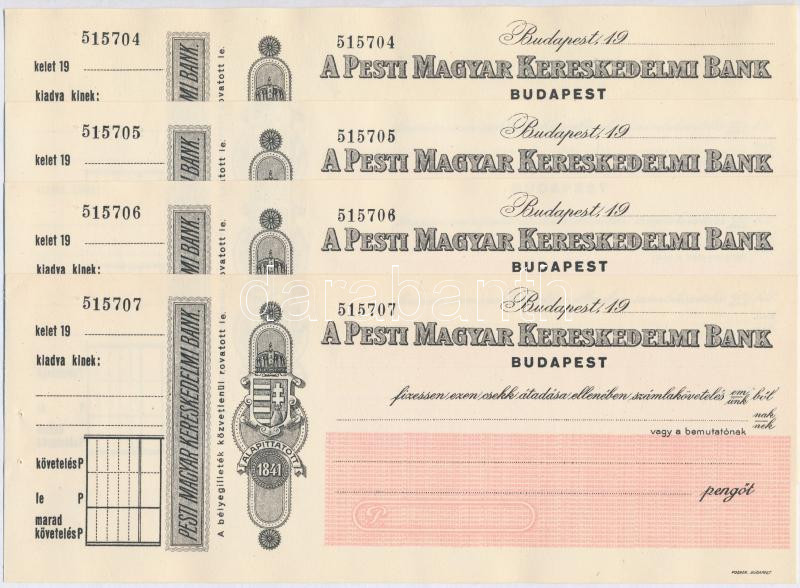 515704
kelet 19
kiadva kinek:
MI BANK.
rovatott le.
515704
Budapest, 19
A PESTI MAGYAR KERESKEDELMI BANK
BUDAPEST
515705
kelet 19
MI BANK.
rovatott le.
515705
Budapest, 19
A PESTI MAGYAR KERESKEDELMI BANK
515706
kelet 19
kiadva kinek:
MI BANK.
rovatott le.
515706
Budapest, 19
A PESTI MAGYAR KERESKEDELMI BANK
BUDAPEST
515707
kelet 19
kiadva kinek:
követelés P
le P
marad
követelés P
PESTI MAGYAR KERESKEDELMI BANK.
A bélyegilleték közvetlenül rovatott le.
ALAPITTATOTT
1841
515707
Budapest, 19
A PESTI MAGYAR KERESKEDELMI BANK
BUDAPEST
fizessen ezen csekk átadása ellenében számlakövetelés em/ünk ből
nak
nek
vagy a bemutatónak
pengőt
P
darabanth